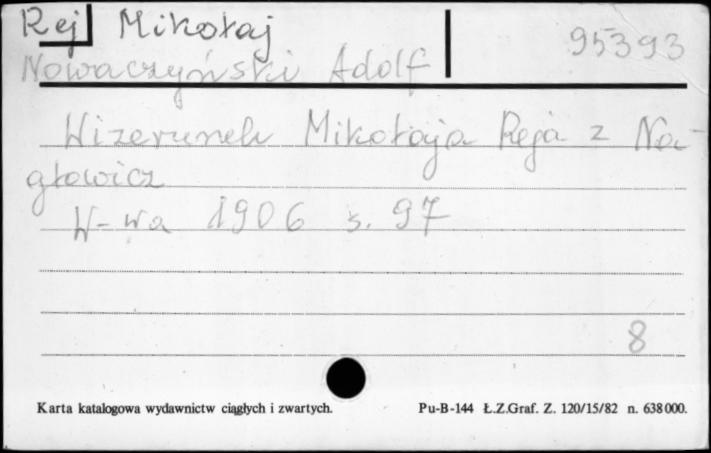 Rej Mikołaj
95393
Nowaczyński Adolf
Wizerunek Mikołaja Reja z Na-
głowicz
W-wa 1906 s. 97
8
Karta katalogowa wydawnictw ciągłych i zwartych.
Pu-B-144 Ł.Z.Graf. Z. 120/15/82 n. 638000.